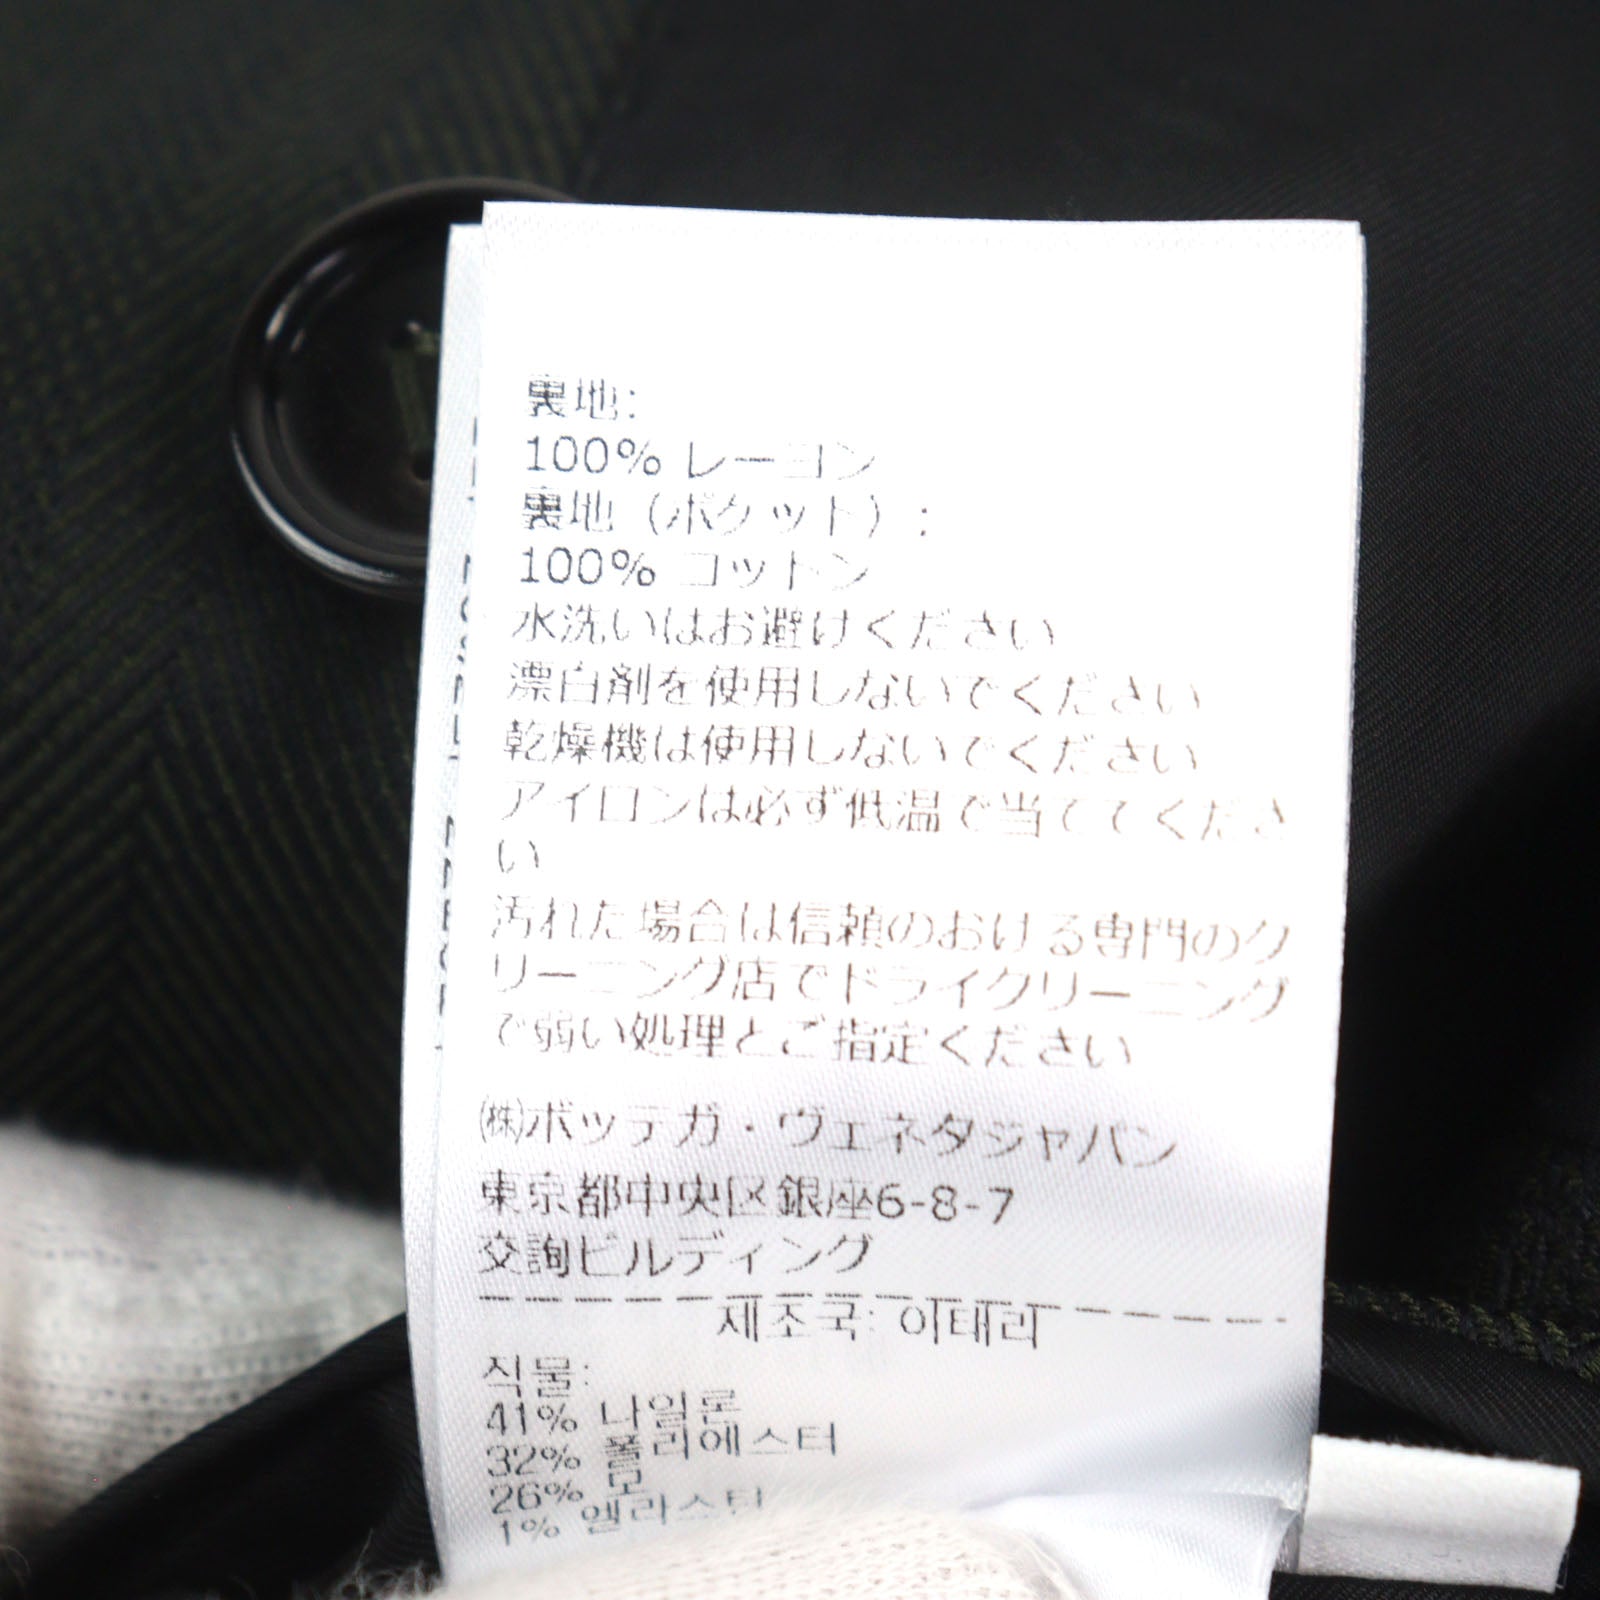 裏地:
100% レーヨン
裏地（ポケット）:
100% コットン
水洗いはお避けください
漂白剤を使用しないでください
乾燥機は使用しないでください
アイロンは必ず低温で当ててくださ
い
汚れた場合は信頼のおける専門のク
リーニング店でドライクリーニング
で弱い処理とご指定ください
㈱ボッテガ・ヴェネタジャパン
東京都中央区銀座6-8-7
交詢ビルディング
제조국: 이태리
직물:
41% 나일론
32% 폴리에스터
26% 모
1% 엘라스틴